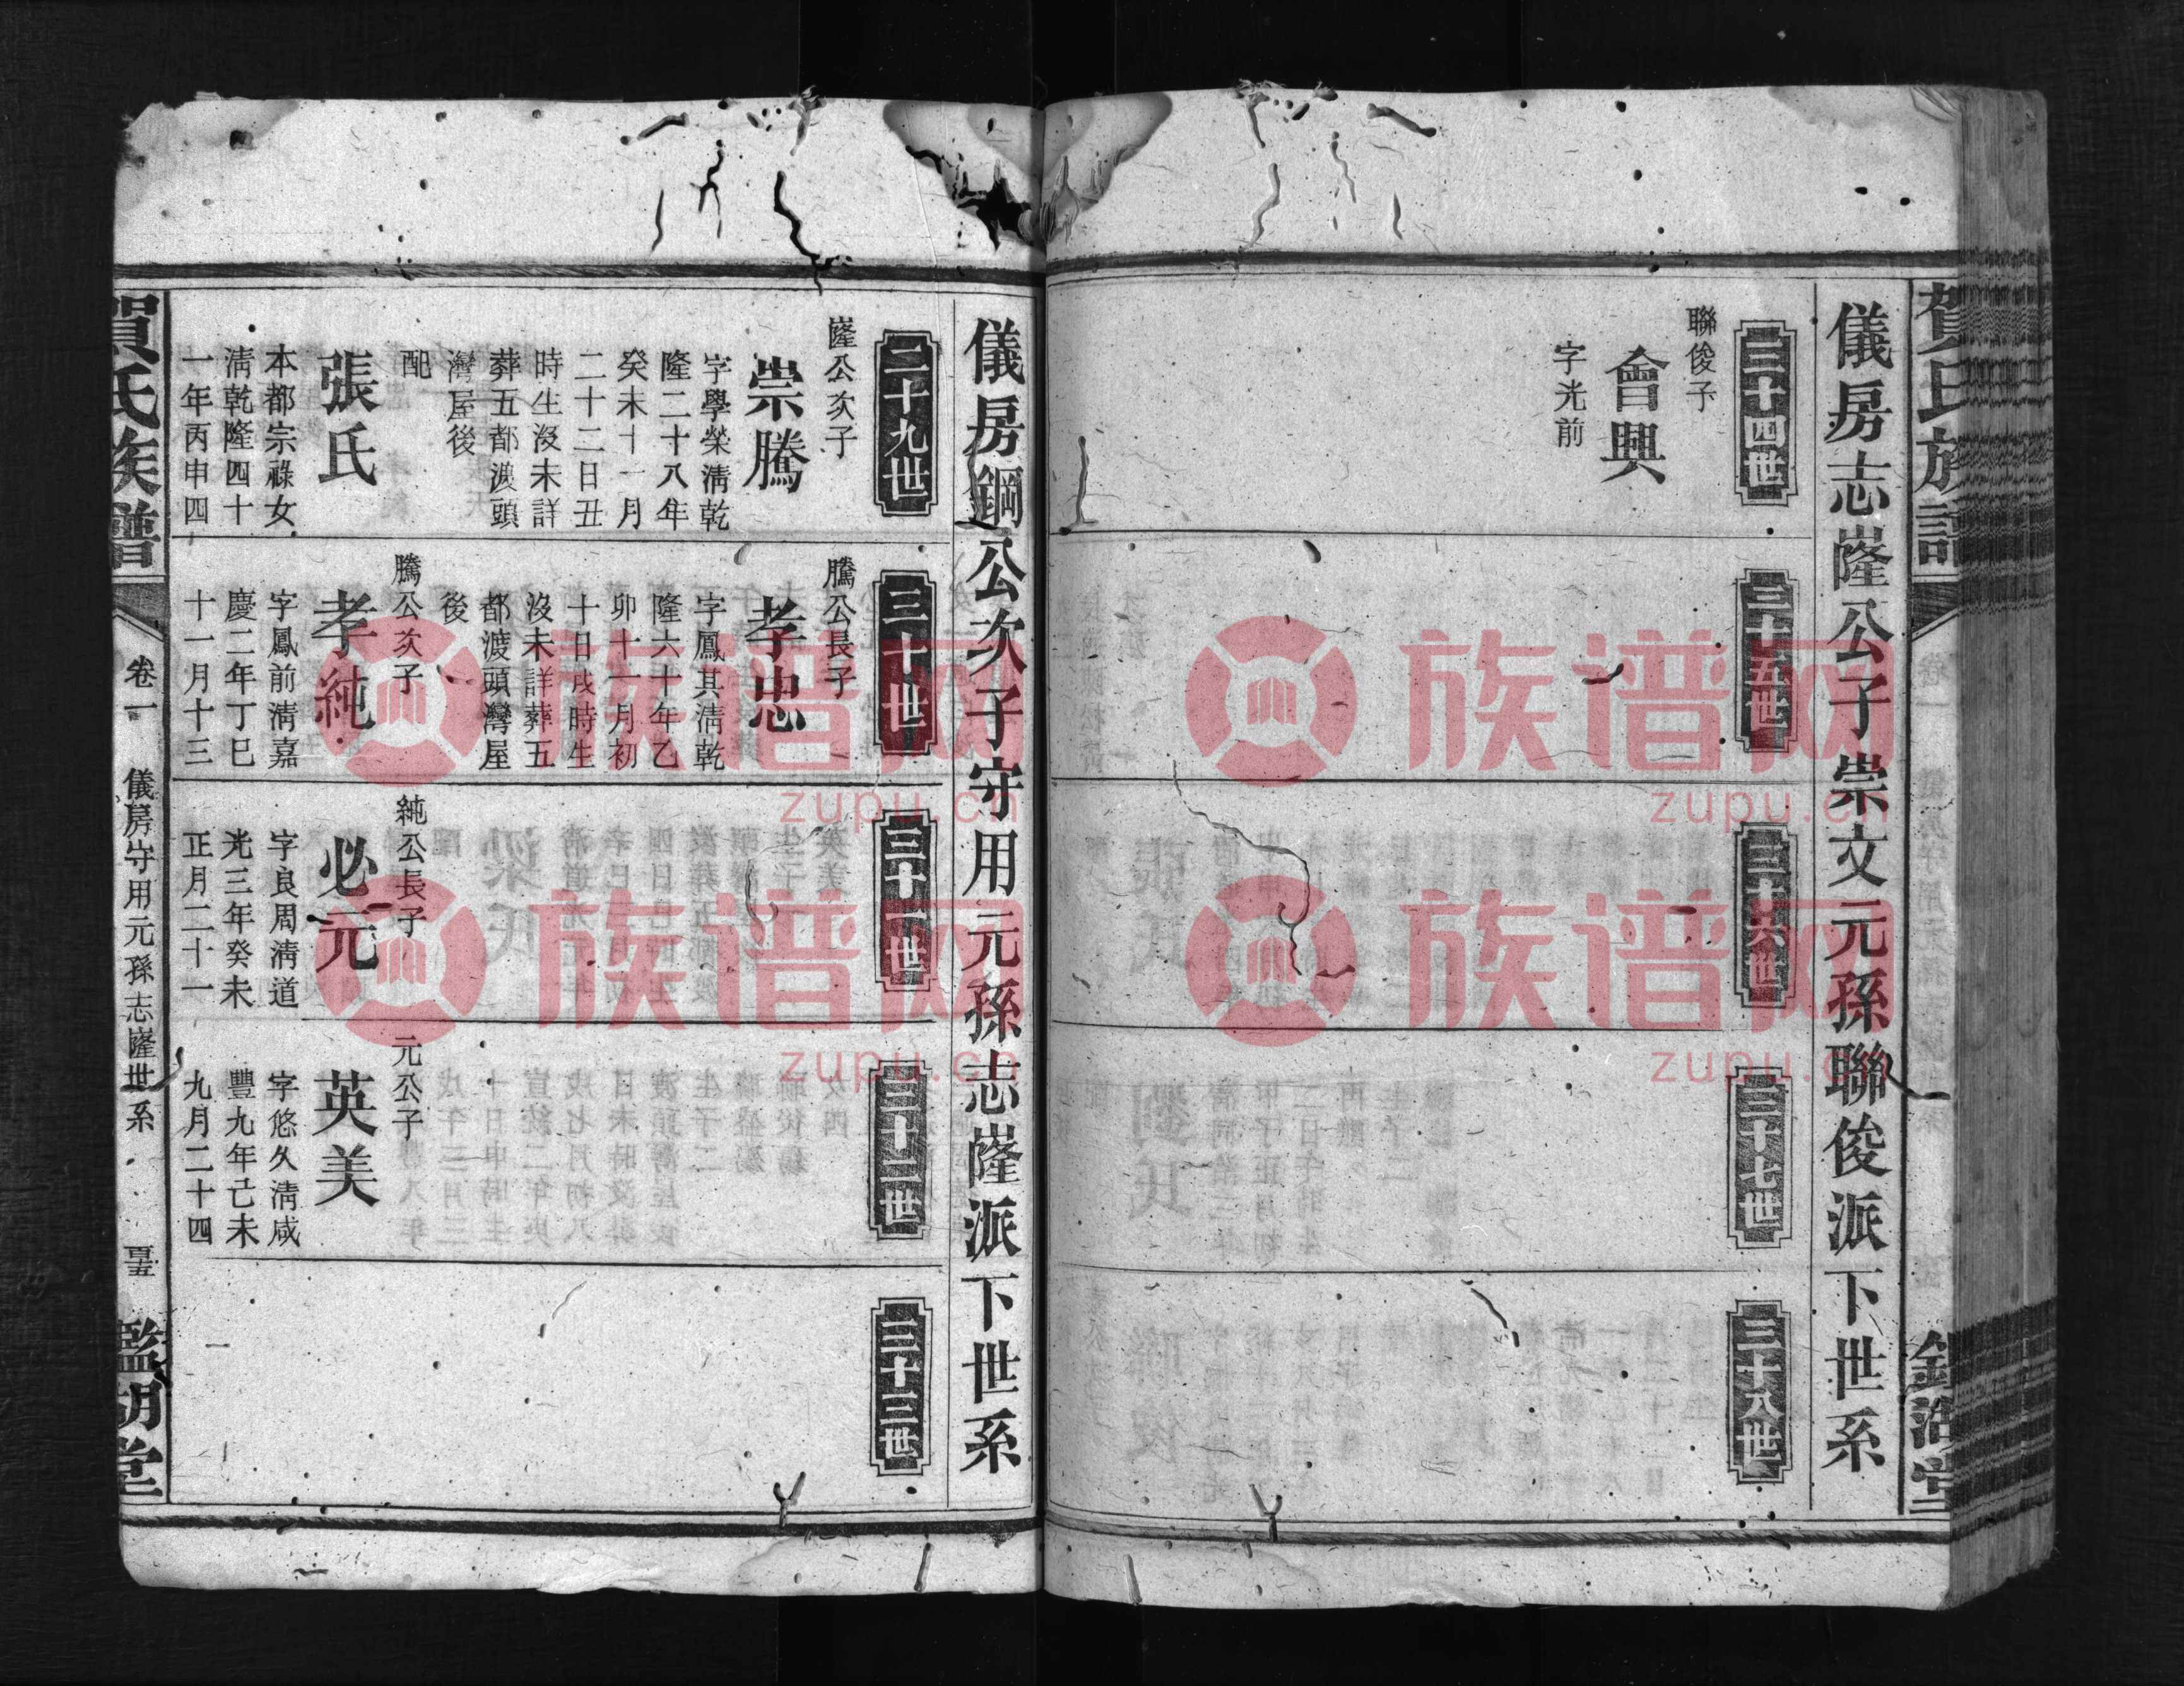 賀氏族譜
儀房志㟳公子崇文元孫聯俊派下世系
三十四世
聯俊子
會興
字光前
三十五世
三十六世
三十七世
三十八世
儀房鋼公次子守用元孫志㟳派下世系
二十九世
㟳公次子
崇騰
字學榮淸乾
隆二十八年
癸未十一月
二十二日丑
時生沒未詳
葬五都渡頭
灣屋後
配
張氏
本都宗祿女
淸乾隆四十
一年丙申四
三十世
騰公長子
孝忠
字鳳其淸乾
隆六十年乙
卯十一月初
十日戌時生
沒未詳葬五
都渡頭灣屋
後
騰公次子
孝純
字鳳前淸嘉
慶二年丁巳
十一月十三
三十一世
純公長子
必元
字良周淸道
光三年癸未
正月二十一
三十二世
元公子
英美
字悠久淸咸
豐九年己未
九月二十四
三十三世
賀氏族譜
卷一
儀房守用元孫志㟳世系
鑑湖堂
族谱网
zupu.cn
族谱网
zupu.cn
族谱网
zupu.cn
族谱网
zupu.cn